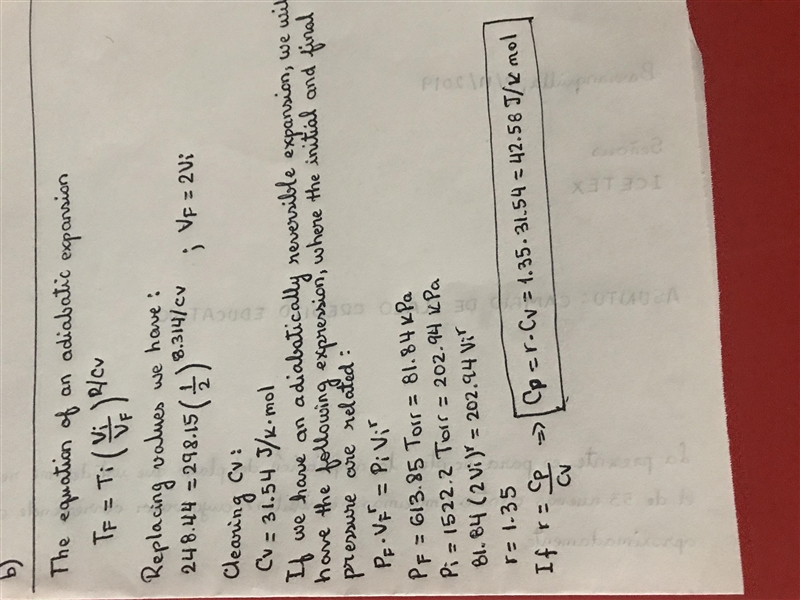 b)
The equation of an adiabatic expansion
TF = Ti (Vi/VF)^R/CV
Replacing values we have:
248.44 = 298.15 (1/2)^8.314/CV ; VF = 2Vi
Clearing CV:
CV = 31.54 J/K·mol
If we have an adiabatically reversible expansion, we will
have the following expression, where the initial and final
pressure are related:
PF · VF^r = Pi Vi^r
PF = 613.85 Torr = 81.84 kPa
Pi = 1522.2 Torr = 202.94 kPa
81.84 (2Vi)^r = 202.94 Vi^r
r = 1.35
If r = Cp/CV => Cp = r · CV = 1.35 · 31.54 = 42.58 J/K mol
Barranquilla, /11/2019
Señores
ICETEX